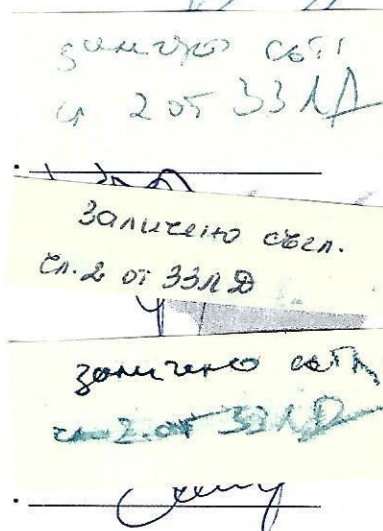 заличено съгл
чл 2 от ЗЗЛД
заличено съгл.
чл. 2 от ЗЗЛД
заличено съгл
чл. 2 от ЗЗЛД